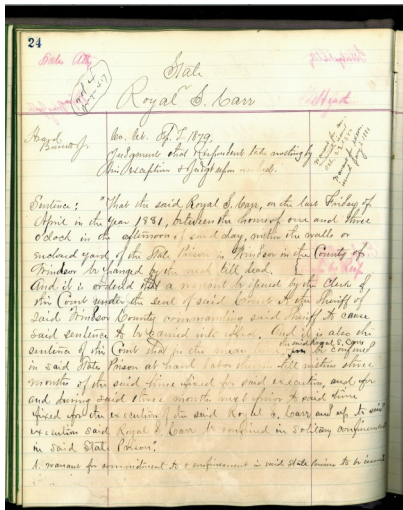 24
State
Royal S. Carr
Co. Ct. Sept. T. 1879,
Judgment that Respondent take nothing by
his exceptions & judgt upon
Sentence: "That the said Royal S. Carr, on the last Friday of
April in the year 1881, between the hours of one and three
o'clock in the afternoon of said day, within the walls or
enclosed yard of the State Prison in Windsor in the County of
Windsor be hanged by the neck till dead.
And it is ordered that a warrant be issued by the Clerk of
this Court under the seal of said Court to the Sheriff of
said Windsor County commanding said Sheriff to cause
said sentence to be carried into effect. And it is also the
the said Royal S. Carr
sentence of this Court that in the mean time be confined
in said State Prison at hard labor till within three
months of the said time fixed for said execution, and for
and during said three months next prior to said time
fixed for the execution of the said Royal S. Carr and up to said
execution said Royal S. Carr be confined in solitary confinement
in said State Prison."
A warrant for commitment to & confinement in said state prison to be issued